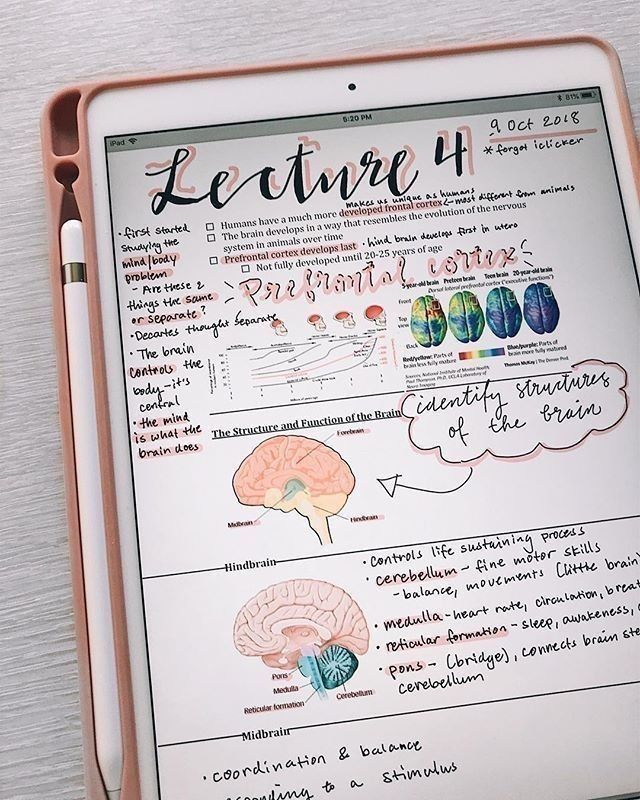 iPad
5:20 PM
81%
Lecture 4
9 Oct 2018
*forgot iclicker
makes us unique as humans
Humans have a much more developed frontal cortex ← most different from animals
The brain develops in a way that resembles the evolution of the nervous
system in animals over time
Prefrontal cortex develops last · hind brain develops first in utero
Not fully developed until 20-25 years of age
• first started
studying the
mind/body
problem
- Are these 2
things the same
or separate?
• Decartes thought separate
• The brain
controls the
body - it's
central
• the mind
is what the
brain does
Prefrontal cortex
5-year-old brain Preteen brain Teen brain 20-year-old brain
Dorsal lateral prefrontal cortex ("executive functions")
Front
Top
view
Back
Red/yellow: Parts of
brain less fully mature
Blue/purple: Parts of
brain more fully matured
Sources: National Institute of Mental Health;
Paul Thompson, Ph.D., UCLA Laboratory of
Neuro Imaging
Thomas McKay | The Denver Post
identify structures
of the brain
The Structure and Function of the Brain
Forebrain
Midbrain
Hindbrain
Hindbrain
• controls life sustaining process
• cerebellum - fine motor skills
- balance, movements (little brain)
• medulla - heart rate, circulation,
• reticular formation - sleep, awakeness,
• pons - (bridge), connects brain
cerebellum
Pons
Medulla
Reticular formation
Cerebellum
Midbrain
• coordination & balance
to a stimulus